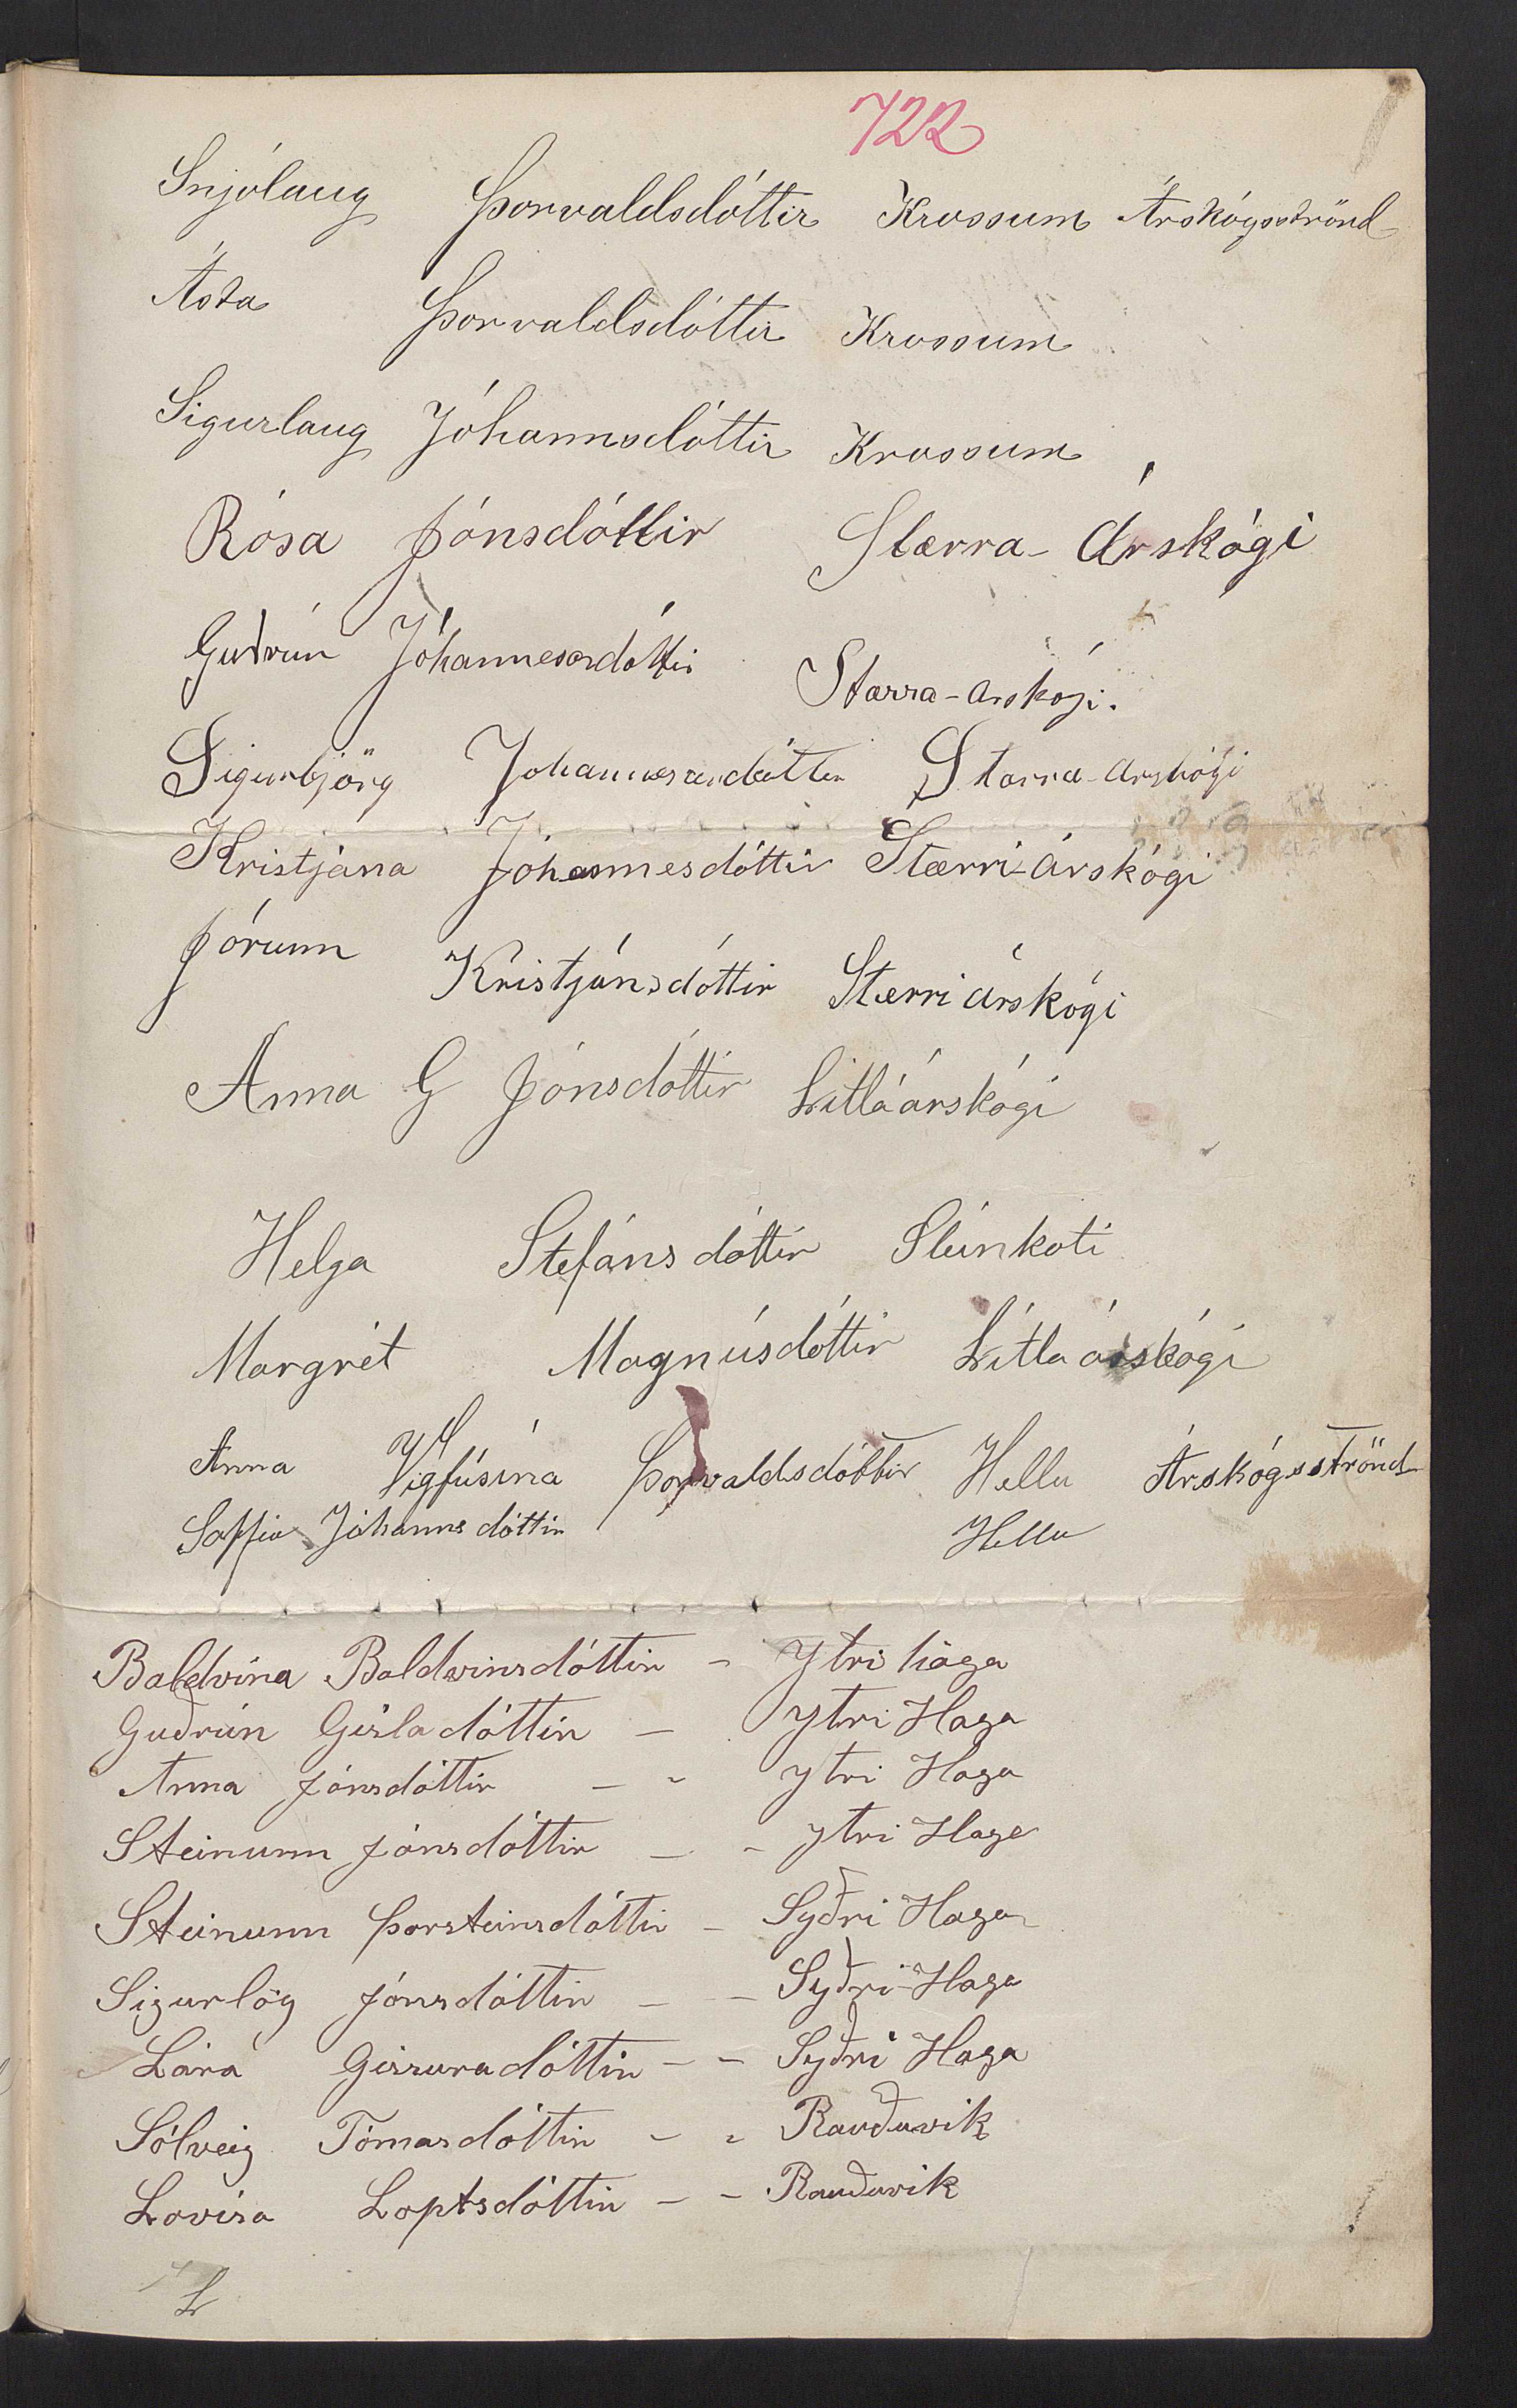 722
Snjólaug Þorvaldsdóttir Krossum Árskógsströnd
Ásta Þorvaldsdóttir Krossum
Sigurlaug Jóhannsdóttir Krossum
Rósa Jónsdóttir Stærra-Árskógi
Guðrún Jóhannesardóttir Stærra-árskógi.
Sigurbjörg Jóhannesardóttir Stærra-árskógi
Kristjána Jóhannesdóttir Stærri-árskógi
Jórunn Kristjánsdóttir Stærriárskógi
Anna G Jónsdóttir Litlaárskógi
Helga Stefánsdóttir Steinkoti
Margrét Magnúsdóttir Litlaárskógi
Anna Vigfúsína Þorvaldsdóttir Hellu Árskógsströnd
Soffía Jóhannsdóttir Hellu
Baldvina Baldvinsdóttir - Ytri haga
Guðrún Gísladóttir - Ytri Haga
Anna Jónsdóttir - - Ytri Haga
Steinunn Jónsdóttir - - Ytri Haga
Steinunn Þorsteinsdóttir - Syðri Haga
Sigurlög Jónsdóttir - - Syðri-Haga
Lára Gissuradóttir - - Syðri Haga
Sólveig Tómasdóttir - - Rauðuvík
Lovísa Loptsdóttir - - Rauðuvík
L